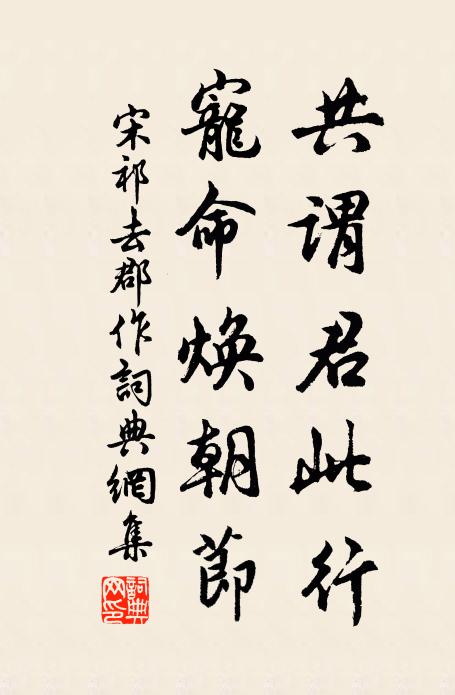 共謂君此行
寵命煥朝節
宋祁去郡作詞典網集
詞典網印